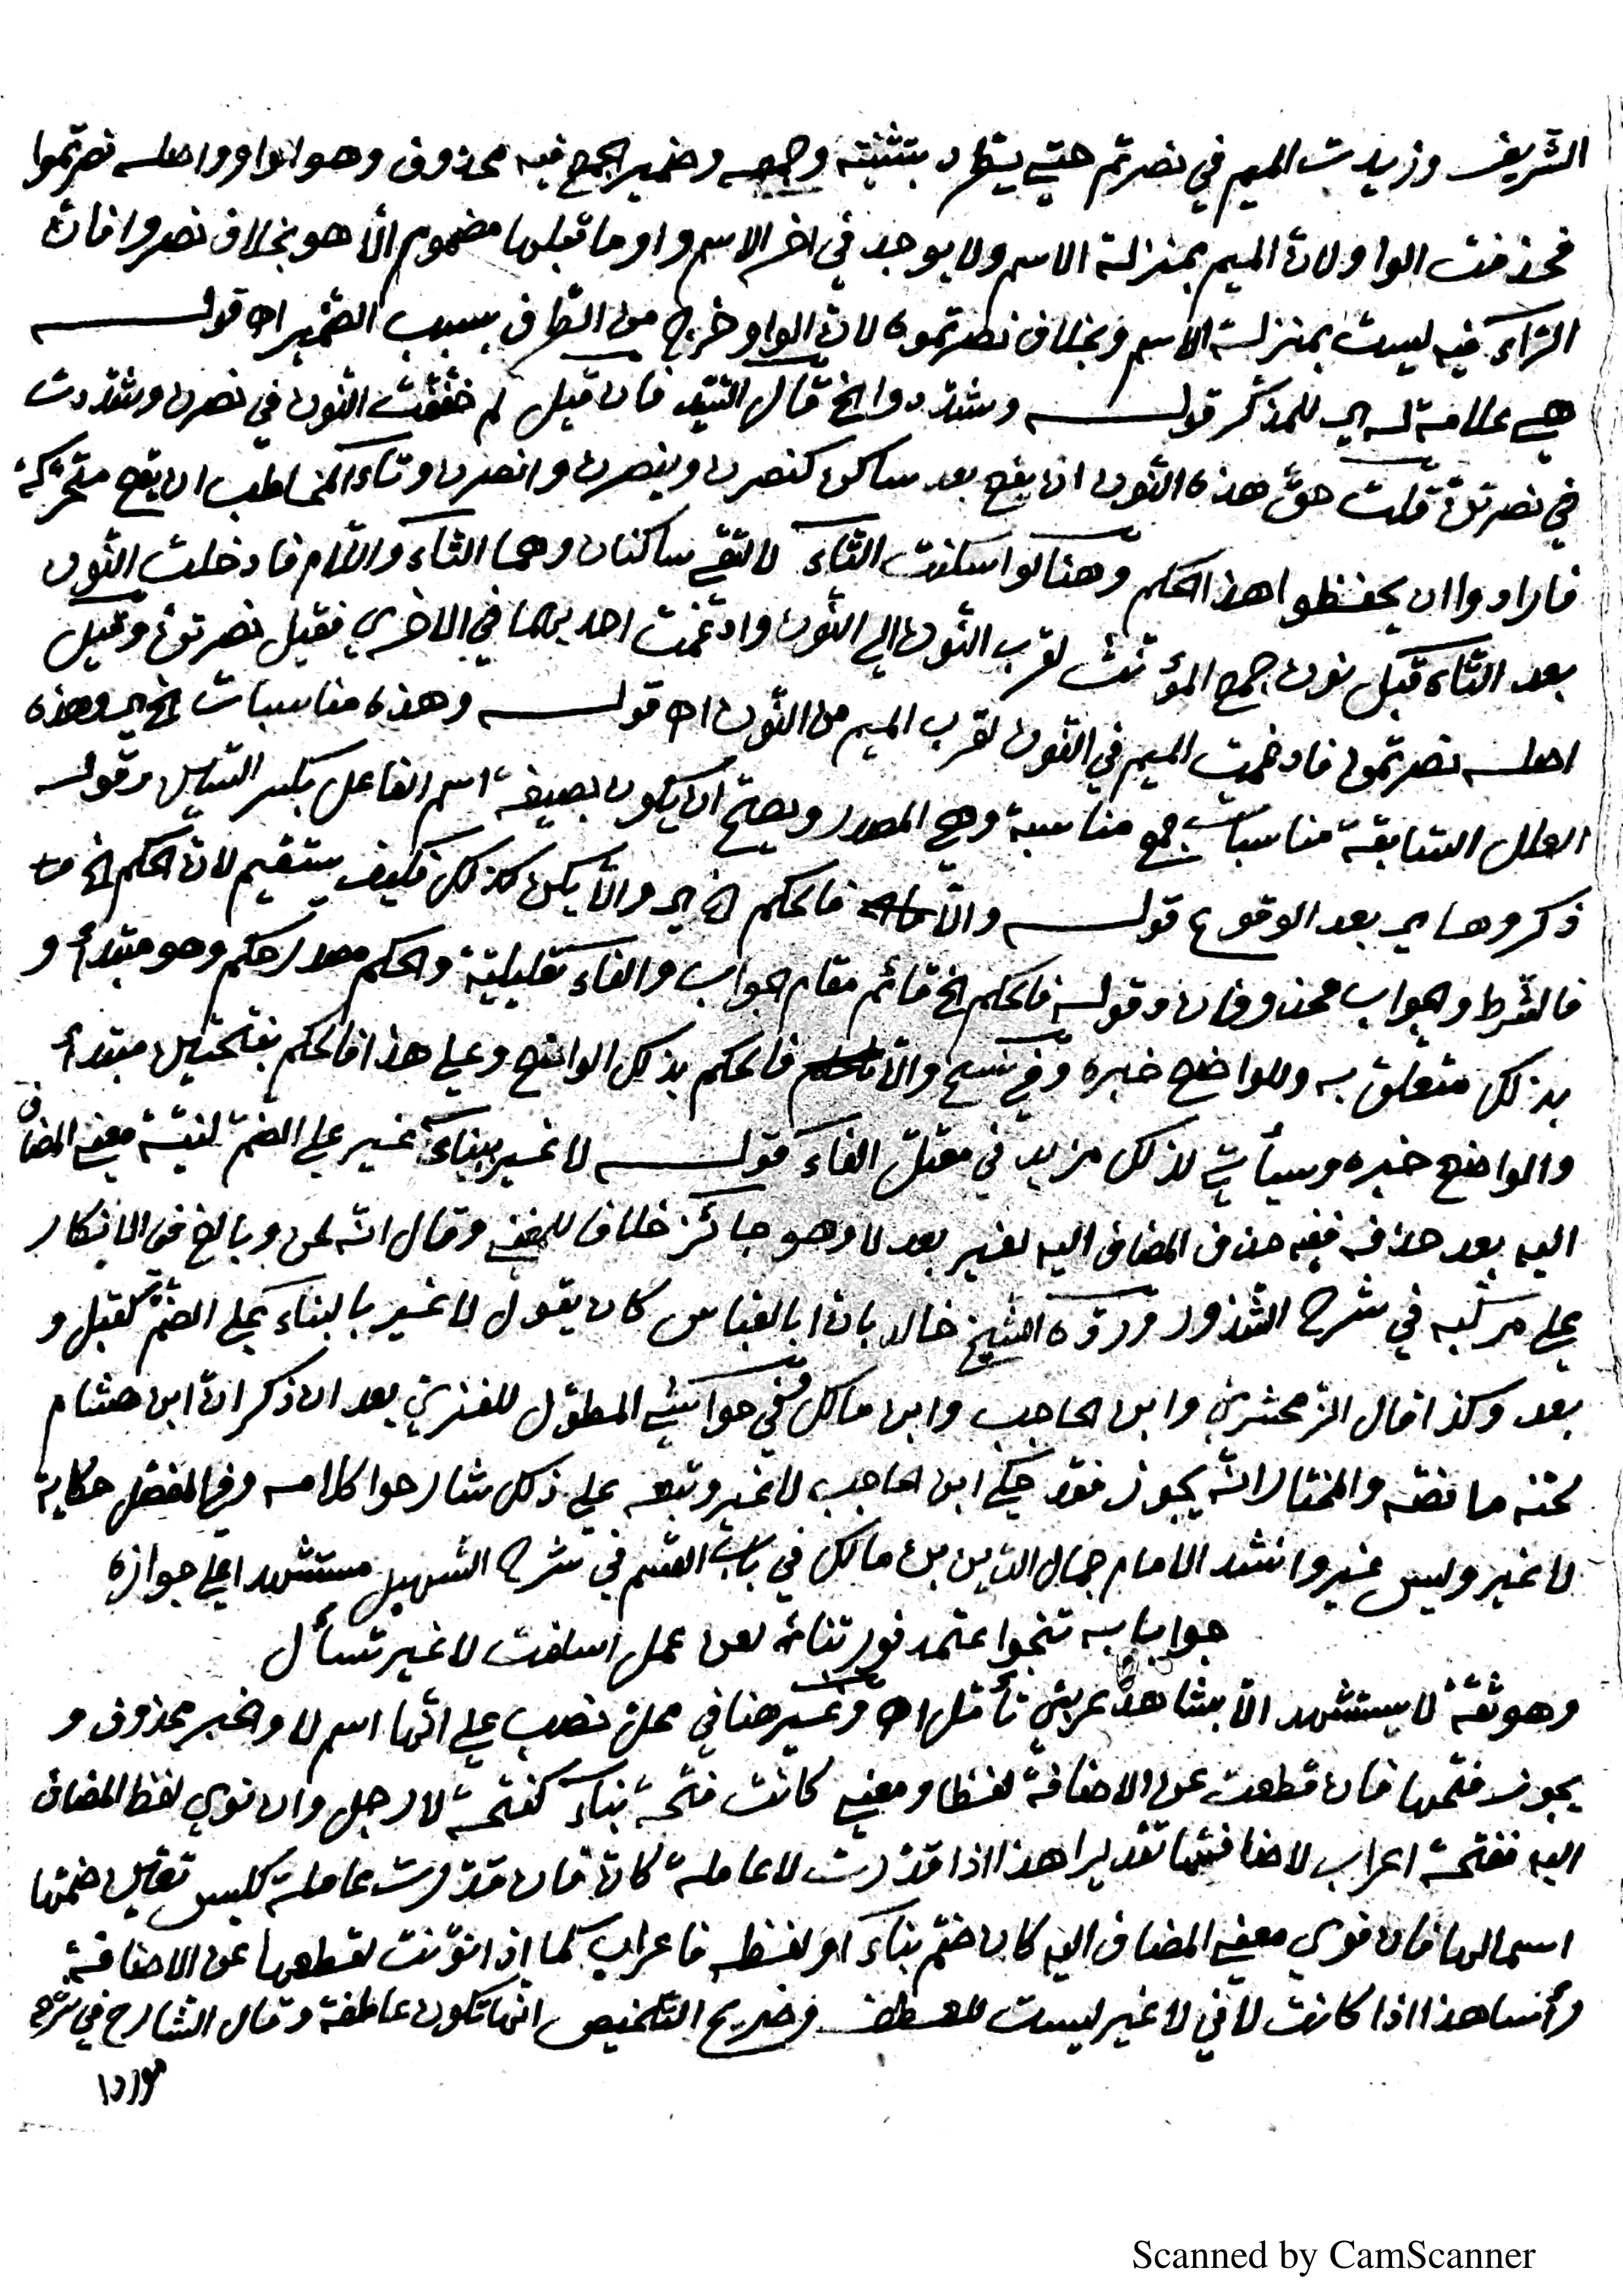 الشريف وزيدت الميم في نصرتم حتى يطرد بتثنيته وجمعه وضمير الجمع فيه محذوف وهو الواو واصله نصرتموا
فحذفت الواو لانّ الميم بمنزلة الاسم ولا يوجد في اخر الاسم واو ما قبلها مضموم الّا هو بخلاف نصروا فانّ
الرّاء فيه ليست بمنزلة الاسم وبخلاف نصرتموه لانّ الواو خرج من الطّرف بسبب الضّمير اه قوله
هي علامة له اي للمذكّر قوله وشدّدوا الخ قال السّيّد فان قيل لم خفّفت النّون في نصرن وشدّدت
في نصرتنّ قلت حقّ هذه النّون ان يقع بعد ساكن كنصرن وينصرن وانصرن وتاء المخاطب ان يقع متحرّكة
فارادوا ان يحفظوا هذا الحكم وهنا لو اسكنت التّاء لالتقى ساكنان وهما التّاء واللّام فادخلت النّون
بعد التّاء قبل نون جمع المؤنّث لقرب النّون الى النّون وادغمت احديهما في الاخرى فقيل نصرتنّ وقيل
اصله نصرتمن فادغمت الميم في النّون لقرب الميم من النّون اه قوله وهذه مناسبات الخ اي وهذه
العلل السّابقة مناسبات جمع مناسبة وهي المصدر ويصحّ ان يكون بصيغة اسم الفاعل بكسر السّين وقوله
ذكروها اي بعد الوقوع قوله والّا فالحكم الخ اي والّا يكن كذلك فكيف يستقيم لانّ الحكم الخ
فالشّرط والجواب محذوفان وقوله فالحكم الخ قائم مقام الجواب والفاء تعليليّة والحكم مصدر حكم وهو مبتدأ و
بذلك متعلّق به وللواضع خبره وفي نسخ والّا فالحكم بذلك الواضع وعلى هذا فالحكم بفتحتين مبتدأ
والواضع خبره وسيأتي لذلك مزيد في معتلّ الفاء قوله لا غير ببناء غير على الضّمّ لنيّة معنى المضاف
اليه بعد حذفه ففيه حذف المضاف اليه لغير بعد لا وهو جائز خلافا للمغني وقال انّه لحن وبالغ في الانكار
على مرتكبه في شرح الشّذور وردّه الشّيخ خالد بانّ ابا العبّاس كان يقول لا غير بالبناء على الضّمّ كقبل و
بعد وكذا قال الزّمخشري وابن الحاجب وابن مالك وفي حواشي المطوّل للفنري بعد ان ذكر انّ ابن هشام
لحّنه ما نصّه والمختار انّه يجوز فقد حكى ابن الحاجب لا غير وتبعه على ذلك شارحوا كلامه وفي المفصّل حكاية
لا غير وليس غير وانشد الامام جمال الدّين بن مالك في باب القسم في شرح التّسهيل مستشهدا على جوازه
جوابا به تنجوا اعتمد فوربّنا لعن عمل اسلفت لا غير تسأل
وهو ثقة لا يستشهد الّا بشاهد عربيّ تأمّل اه وغير هنا في محلّ نصب على انّها اسم لا والخبر محذوف و
يجوز فتحها فان قطعت عن الاضافة لفظا ومعنى كانت فتحة بناء كفتحة لا رجل وان نوي لفظ المضاف
اليه ففتحة اعراب لاضافتها تقديرا هذا اذا قدّرت لا عاملة كانّ فان قدّرت عاملة كليس تعيّن ضمّها
اسما لها فان نوي معنى المضاف اليه كان ضمّ بناء او لفظه فاعراب كما اذا نوّنت لقطعها عن الاضافة
رأسا هذا اذا كانت لا في لا غير ليست للعطف وصريح التلخيص انّها تكون عاطفة وقال الشارح في شرحه
Scanned by CamScanner